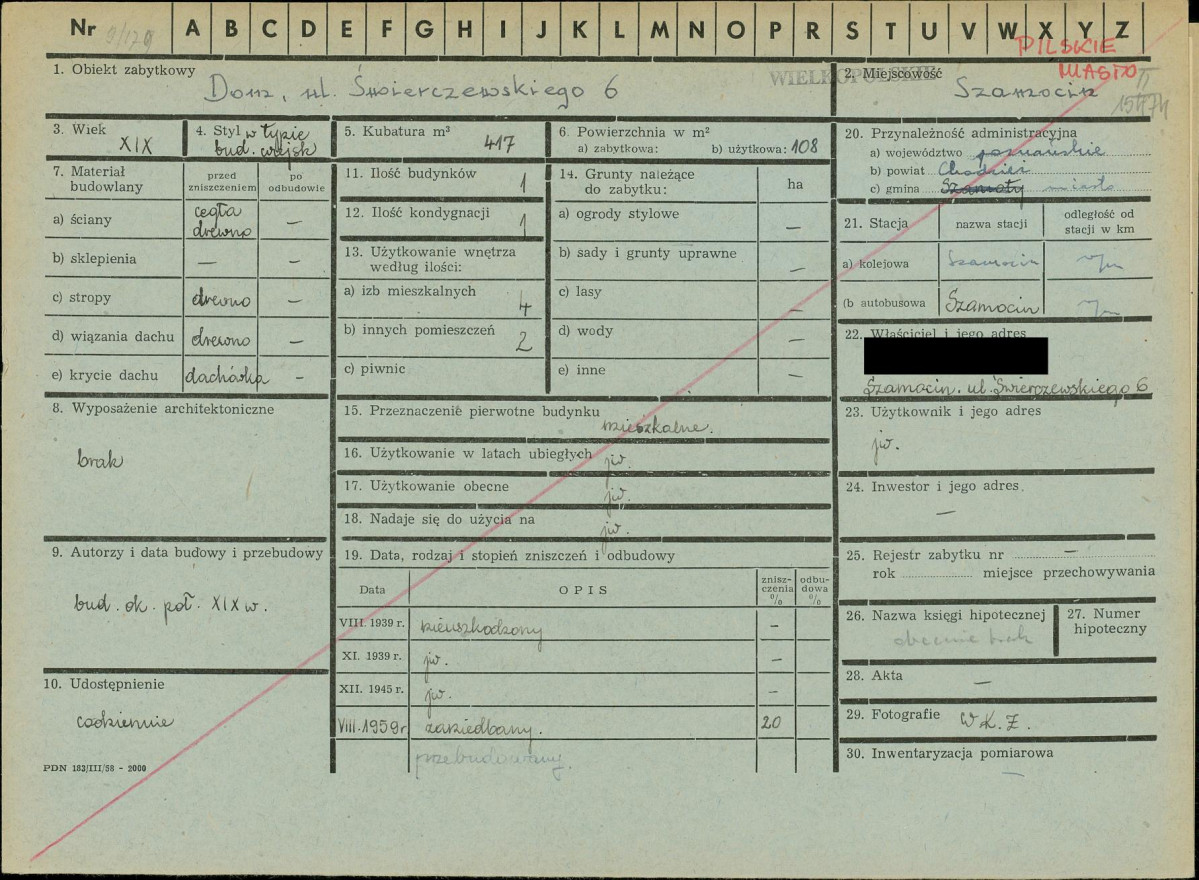 Nr A B C D E F G H I J K L M N O P R S T U V W X Y Z
PILSKIE
MIASTO
1. Obiekt zabytkowy
Dom, ul. Świerczewskiego 6
WIELKOPOLSKIE
2. Miejscowość
Szamocin
3. Wiek
XIX
4. Styl w typie
bud. wiejsk
5. Kubatura m³
417
6. Powierzchnia w m²
a) zabytkowa: b) użytkowa: 108
7. Materiał
budowlany
przed
zniszczeniem
po
odbudowie
a) ściany cegła
drewno –
b) sklepienia — –
c) stropy drewno –
d) wiązania dachu drewno –
e) krycie dachu dachówka –
8. Wyposażenie architektoniczne
brak
9. Autorzy i data budowy i przebudowy
bud. ok. poł. XIX w.
10. Udostępnienie
codziennie
PDN 183/III/58 - 2000
11. Ilość budynków 1
12. Ilość kondygnacji 1
13. Użytkowanie wnętrza
według ilości:
a) izb mieszkalnych 4
b) innych pomieszczeń 2
c) piwnic
14. Grunty należące
do zabytku: ha
a) ogrody stylowe –
b) sady i grunty uprawne –
c) lasy –
d) wody –
e) inne –
15. Przeznaczenie pierwotne budynku
mieszkalne.
16. Użytkowanie w latach ubiegłych jw.
17. Użytkowanie obecne jw.
18. Nadaje się do użycia na jw.
19. Data, rodzaj i stopień zniszczeń i odbudowy
Data OPIS znisz-
czenia
% odbu-
dowa
%
VIII. 1939 r. nieuszkodzony –
XI. 1939 r. jw. –
XII. 1945 r. jw. –
VIII. 1959 r zaniedbany. 20
przebudowany.
20. Przynależność administracyjna
a) województwo poznańskie
b) powiat Chodzież
c) gmina Szamoty miasto
21. Stacja nazwa stacji odległość od
stacji w km
a) kolejowa Szamocin
(b autobusowa Szamocin
22. Właściciel i jego adres
Szamocin. ul. Świerczewskiego 6
23. Użytkownik i jego adres
jw.
24. Inwestor i jego adres.
—
25. Rejestr zabytku nr –
rok miejsce przechowywania
26. Nazwa księgi hipotecznej
obecnie brak
27. Numer
hipoteczny
28. Akta —
29. Fotografie W.K.Z.
30. Inwentaryzacja pomiarowa
—